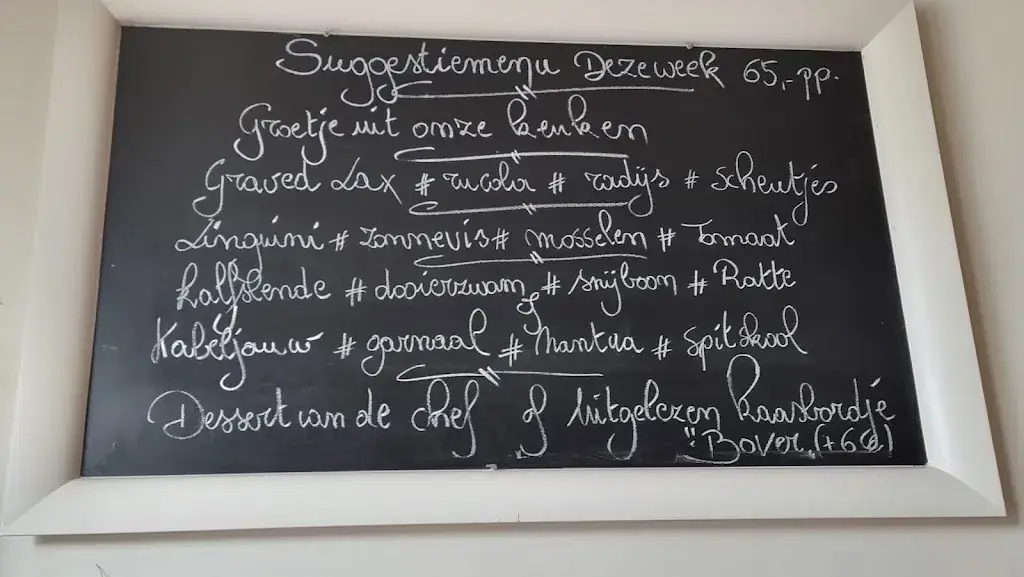 Suggestiemenu Dezeweek 65,-pp.
Groetje uit onze keuken
Graved Lax # rucola # radijs # scheutjes
Linguini # zonnevis # mosselen # Tomaat
Kalfslende # dooierzwam # snijboon # Ratte
of
Kabeljauw # garnaal # Mantua # Spitskool
Dessert van de chef of Uitgelezen kaasbordje
"Bover (+6€)